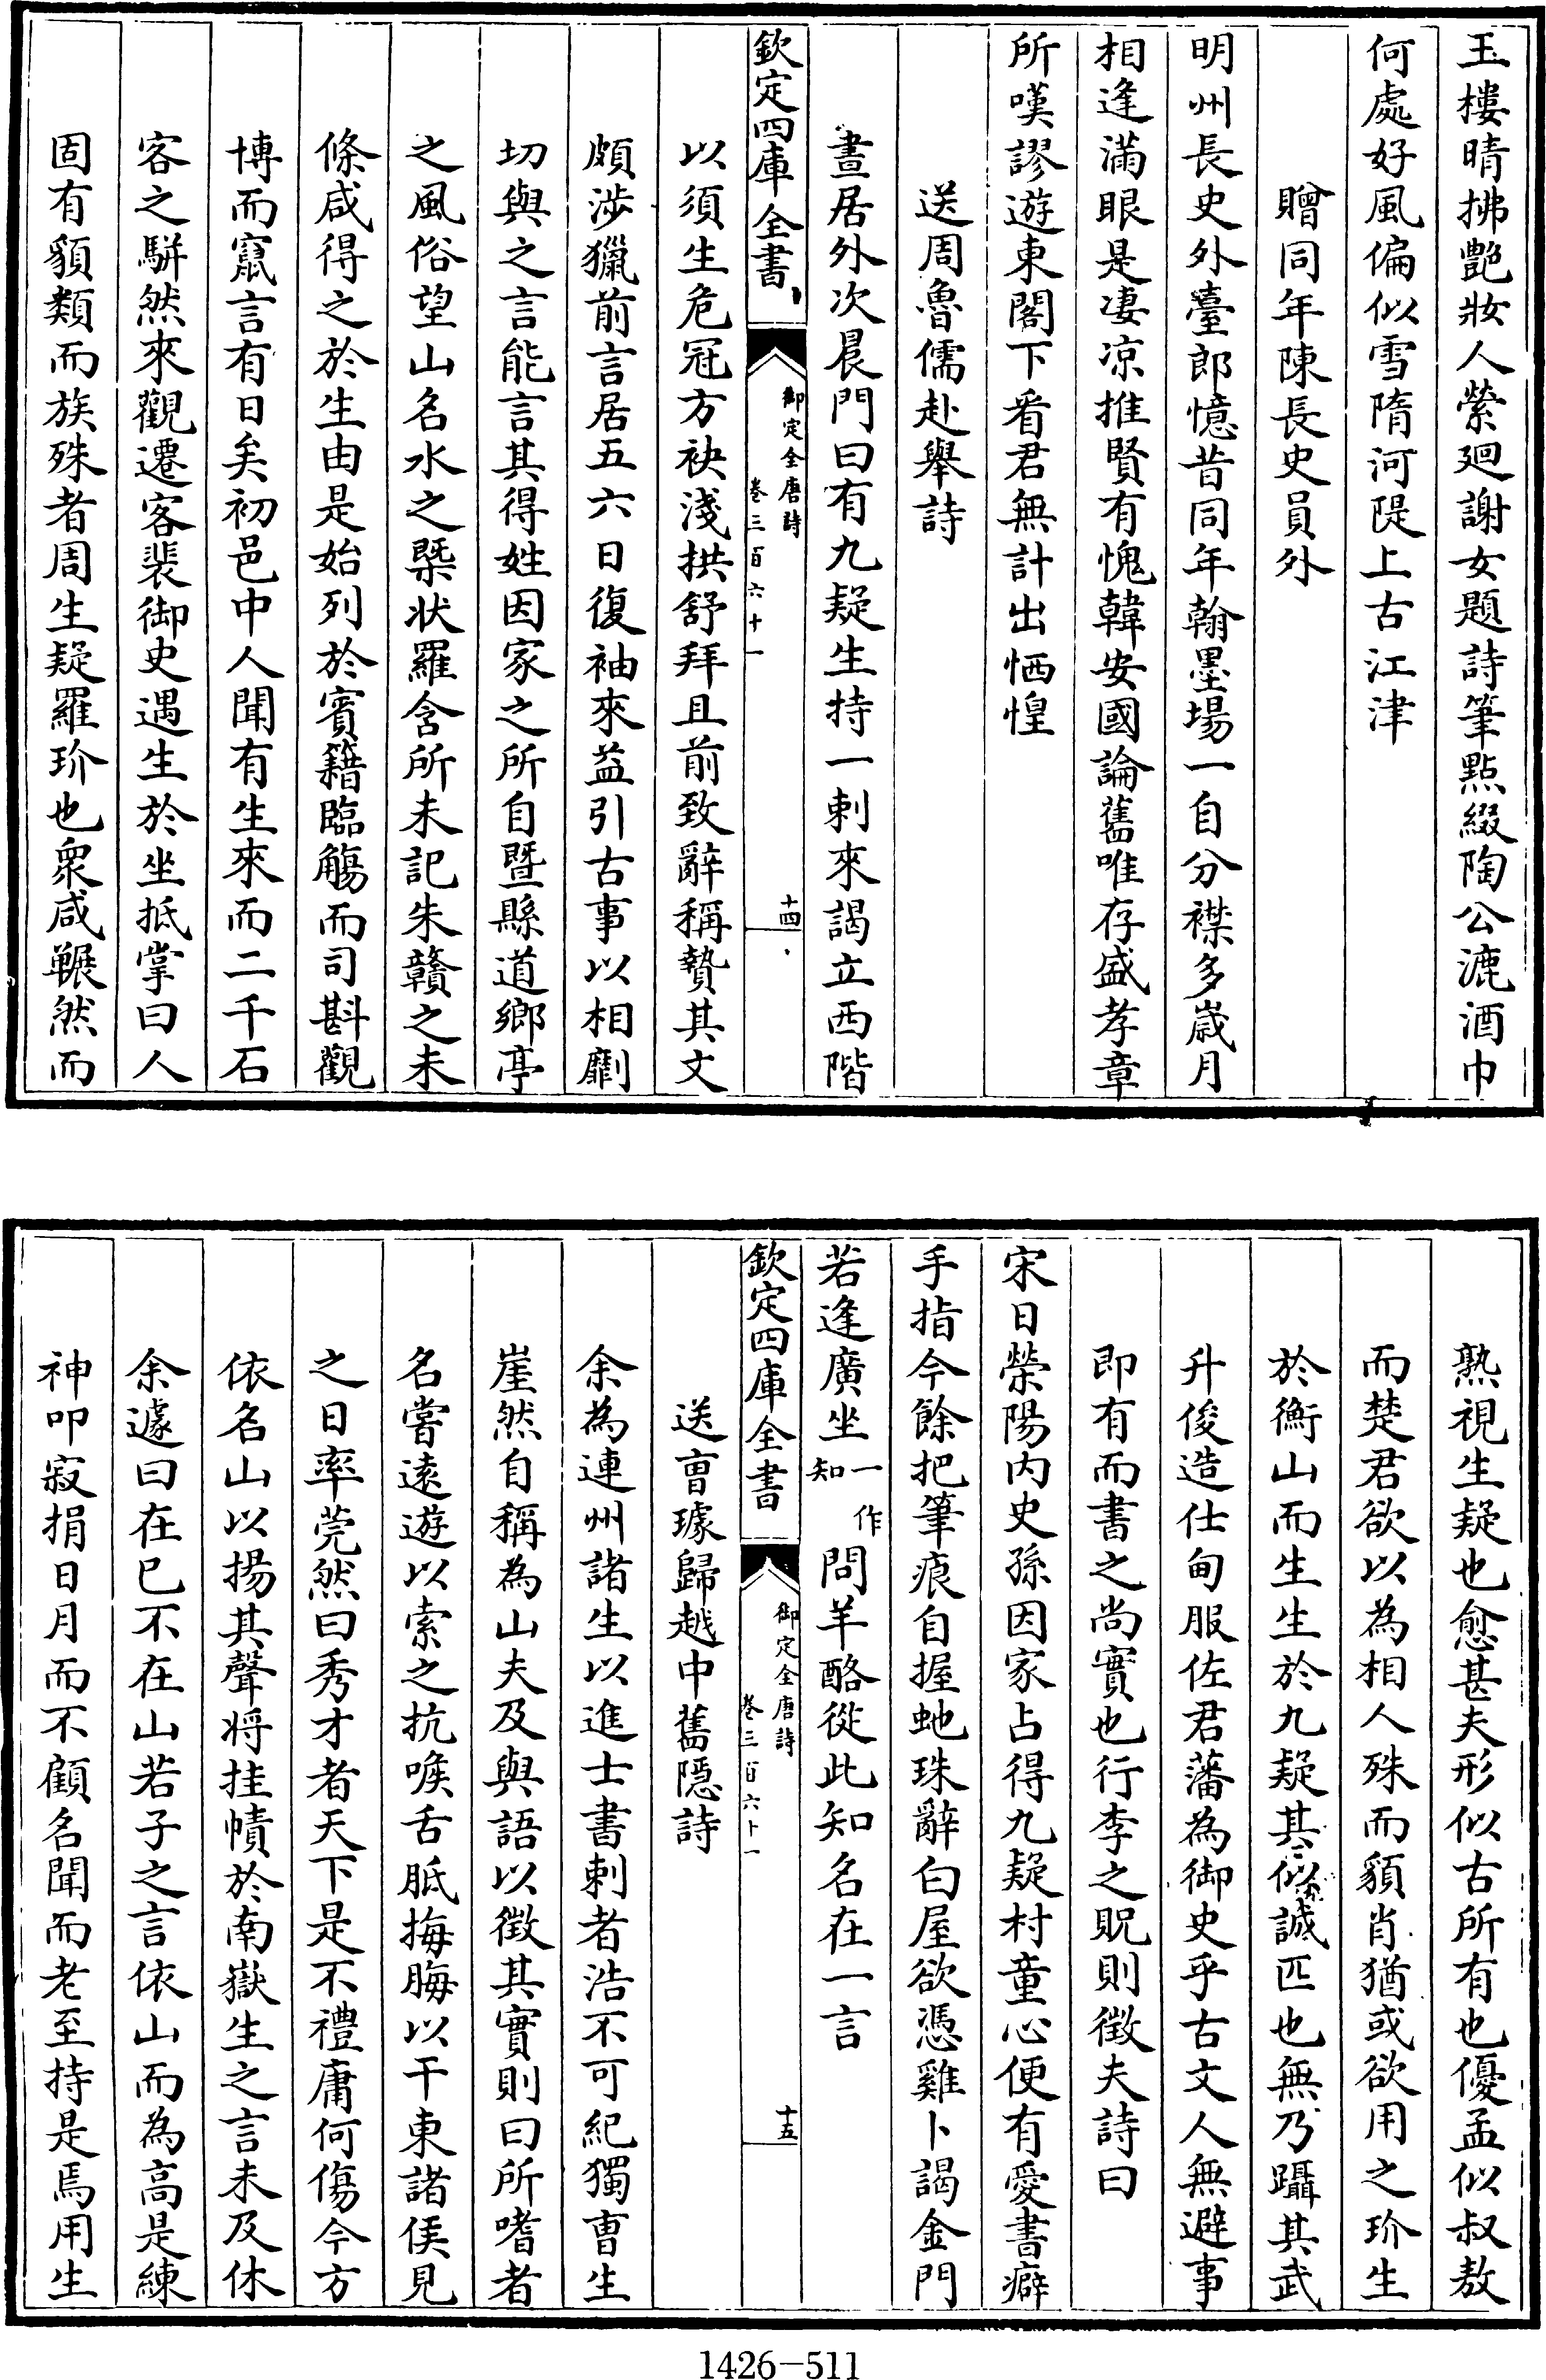 玉樓晴拂艷妝人縈廻謝女題詩筆點綴陶公漉酒巾
何處好風偏似雪隋河隄上古江津
贈同年陳長史員外
明州長史外臺郎憶昔同年翰墨場一自分襟多歲月
相逢滿眼是凄凉推賢有愧韓安國論舊唯存盛孝章
所嘆謬遊東閣下看君無計出恓惶
送周魯儒赴舉詩
晝居外次晨門曰有九疑生持一刺來謁立西階
欽定四庫全書
御定全唐詩
卷三百六十一
十四
以須生危冠方袂淺拱舒拜且前致辭稱贄其文
頗涉獵前言居五六日復袖來益引古事以相劘
切與之言能言其得姓因家之所自暨縣道鄉亭
之風俗望山名水之槩狀羅含所未記朱贛之未
條咸得之於生由是始列於賓籍臨觴而司斟觀
博而窺言有日矣初邑中人聞有生來而二千石
客之駢然來觀遷客裴御史遇生於坐抵掌曰人
固有貌類而族殊者周生疑羅玠也衆咸囅然而
熟視生疑也愈甚夫形似古所有也優孟似叔敖
而楚君欲以為相人殊而貌肖猶或欲用之玠生
於衡山而生生於九疑其似誠匹也無乃躡其武
升俊造仕甸服佐君藩為御史乎古文人無避事
即有而書之尚實也行李之貺則徵夫詩曰
宋日榮陽內史孫因家占得九疑村童心便有愛書癖
手指今餘把筆痕自握虵珠辭白屋欲憑雞卜謁金門
若逢廣坐一作知問羊酪從此知名在一言
欽定四庫全書
御定全唐詩
卷三百六十一
十五
送曹璩歸越中舊隱詩
余為連州諸生以進士書刺者浩不可紀獨曹生
崖然自稱為山夫及與語以徵其實則曰所嗜者
名嘗遠遊以索之抗喉舌胝拇脢以干東諸侯見
之日率莞然曰秀才者天下是不禮庸何傷今方
依名山以揚其聲將挂幘於南嶽生之言未及休
余遽曰在巳不在山若子之言依山而為高是練
神叩寂捐日月而不顧名聞而老至持是焉用生
1426—511